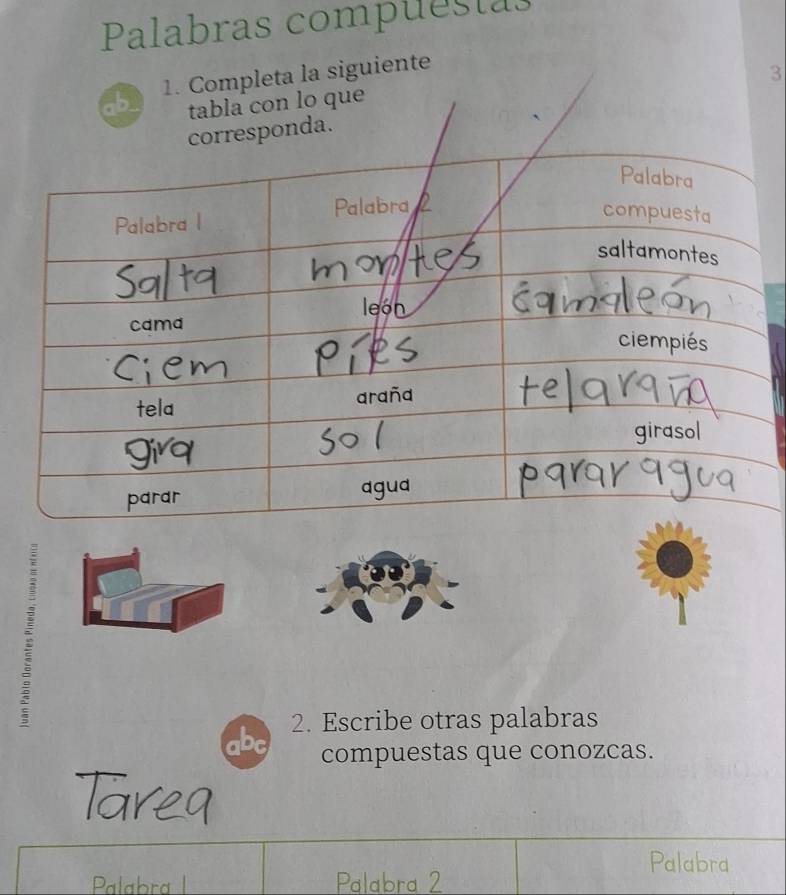 Palabras compuestas
3
ab...
1. Completa la siguiente
tabla con lo que
corresponda.
Palabra 1 Palabra 2 Palabra compuesta
Salta montes saltamontes
cama león camaleón
Ciem píes ciempiés
tela araña telaraña
gira sol girasol
parar agua pararagua
Juan Pablo Dorantes Pineda, CIUDAD DE MÉXICO
abc
2. Escribe otras palabras
compuestas que conozcas.
Tarea
Palabra 1 Palabra 2 Palabra